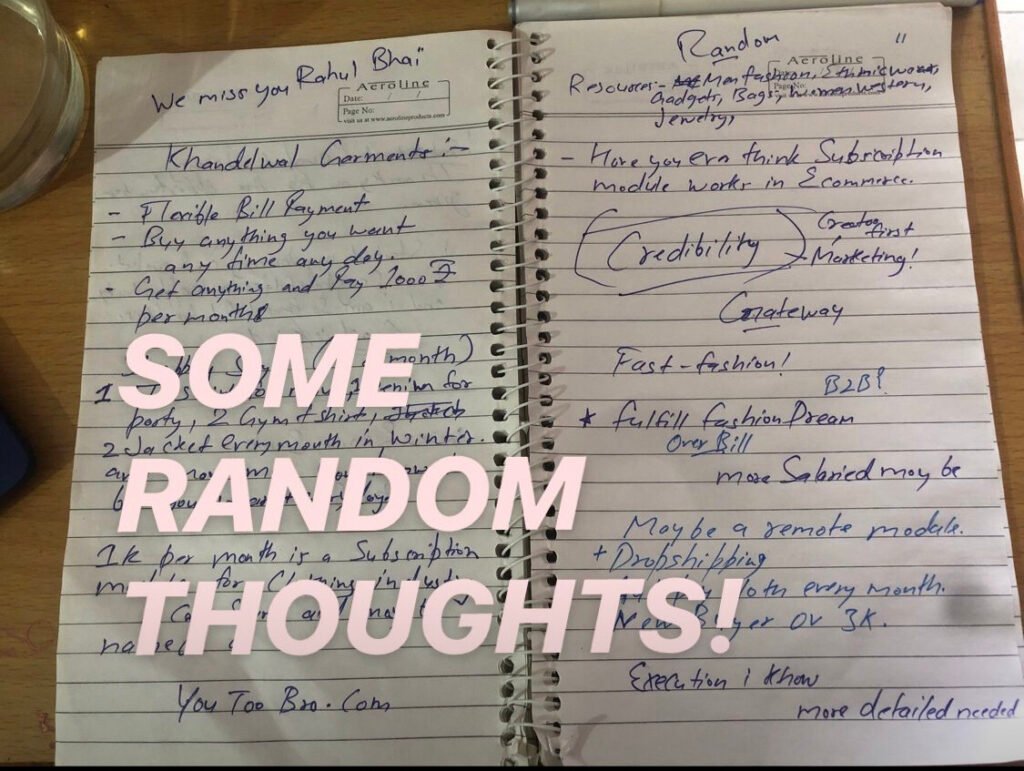 We miss you Rahul Bhai
Aeroline
Date: / /
Page No:
visit us at www.aerolineproducts.com
Khandelwal Garments :-
- Flexible Bill Payment
- Buy anything you want
any time any day.
- Get anything and Pay 1000 ₹
per month
month)
1
for
party, 2 Gym t shirt,
2 Jacket every month in winter.
1k per month is a Subscription
for Clothing
You Too Bro.Com
SOME
RANDOM
THOUGHTS!
Random "
Aeroline
Page No:
Resources - Men fashion, Ethnic
Gadgets, Bags, women western,
Jewelry,
- Have you ever think Subscription
module works in Ecommerce.
Credibility
Creator first
Marketing!
Gateway
Fast-fashion!
B2B?
* fulfill fashion Dream
Over Bill
more Salaried may be
Maybe a remote module.
+ Dropshipping
cloth every month.
New Buyer or 3K.
Execution i know
more detailed needed